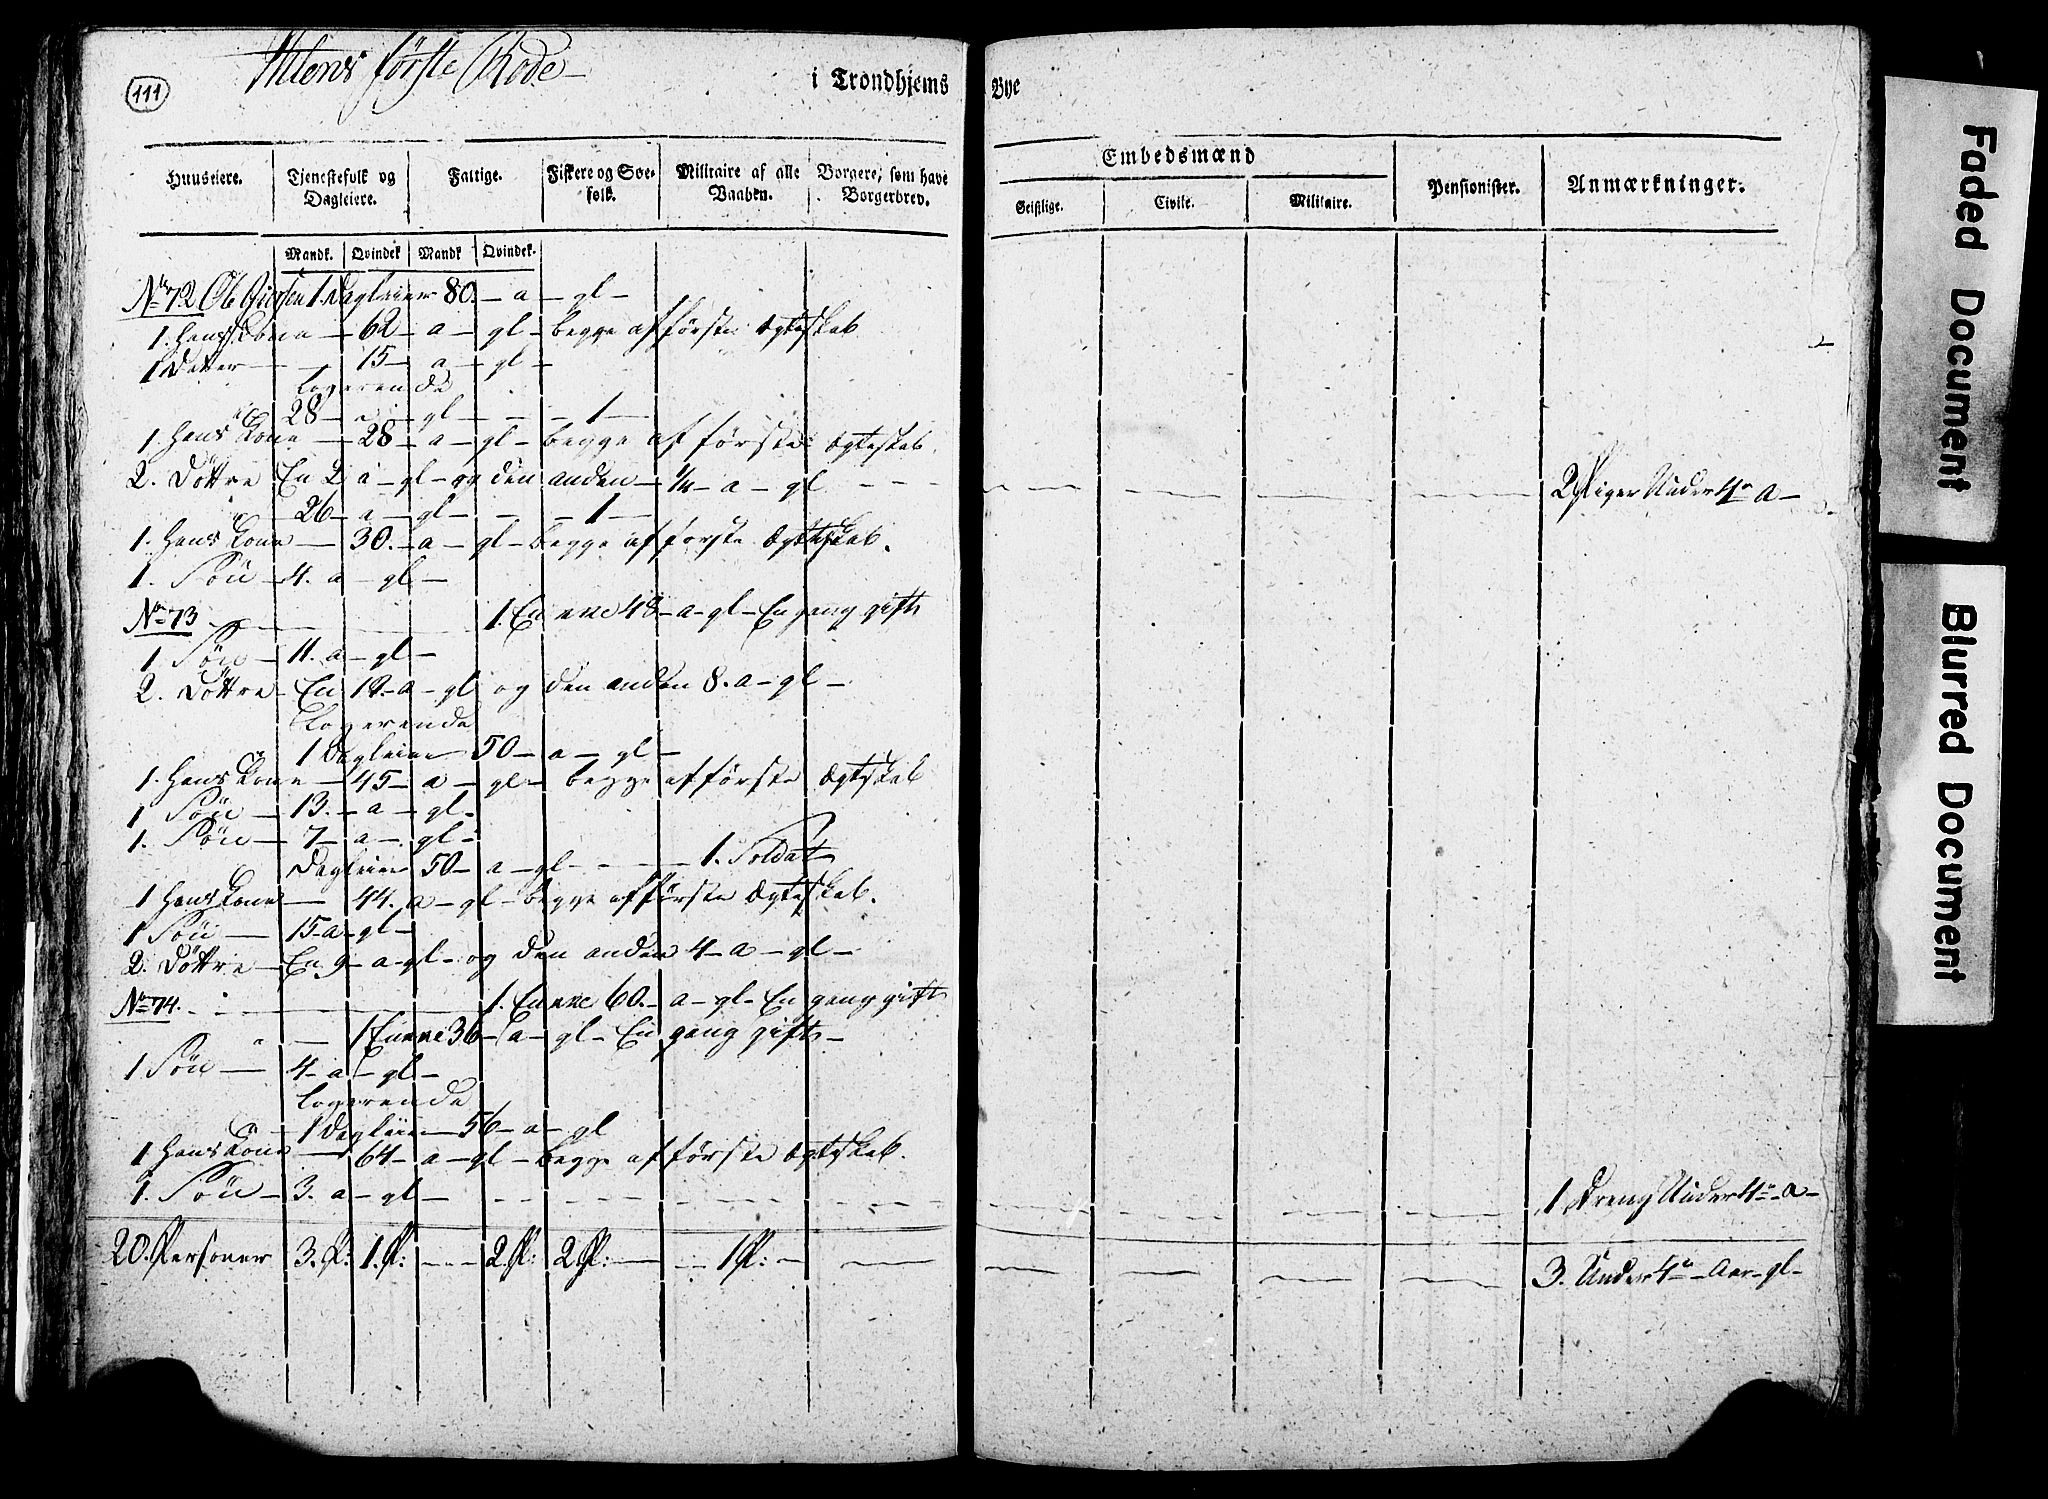 111
Ihlens første Rode
i Trondhjems Bye
Huuseiere. Tjenestefolk og Dagleiere. Fattige. Fiskere og Søefolk. Militaire af alle Vaaben. Borgere, som have Borgerbrev. Embedsmænd Pensionister. Anmærkninger.
Geistlige. Civile. Militaire.
Mandk. Qvindek Mandk Qvindek.
No 72 Ole 1 Dagleier 80 - a - gl -
1. Hans Kone - 62 - a - gl - begge af første Ægteskab
1 Datter - 15 - a - gl -
Logerende
28 - a - gl - - - 1 -
1. Hans Kone - 28 - a - gl - begge af første Ægteskab.
2. Döttre En 2 a - gl - og den anden - 1/4 - a - gl - - - 2 Piger Under 4re a -
26 - a - gl - - - 1 -
1. Hans Kone - 30. - a - gl - begge af første Ægteskab.
1. Søn - 4. a - gl -
No 73 - - - 1. Enke 48 - a - gl - En gang gift
1 Søn - 11. a - gl -
2. Döttre - En 12 - a - gl og den anden 8. a - gl -
Logerende
1 Dagleier 50 - a - gl -
1. Hans Kone - 45 - a - gl - begge af første Ægteskab
1 Søn - 13. - a - gl -
1. Søn - 7 - a - gl -
Dagleier 50 - a - gl - - - 1. Soldat
1 Hans Kone - 44. a - gl - begge af første Ægteskab.
1 Søn - 15 - a - gl -
2. Döttre - En 9 - a - gl - og den anden 4 - a - gl -
No 74. - - - 1. Enke 60. - a - gl - En gang gift
1 Enke 36 - a - gl - En gang gift -
1 Søn - 4 - a - gl -
Logerende
1 Dagleier - 56 - a - gl
1 Hans Kone - 64 - a - gl - begge af første Ægteskab.
1. Søn - 3. a - gl - - - 1 Dreng Under 4re - a -
20. Personer 3. P: 1. P: - - - 2. P: 2 P: - 1 P: - - 3. Under 4re - Aar - gl -
Faded Document
Blurred Document